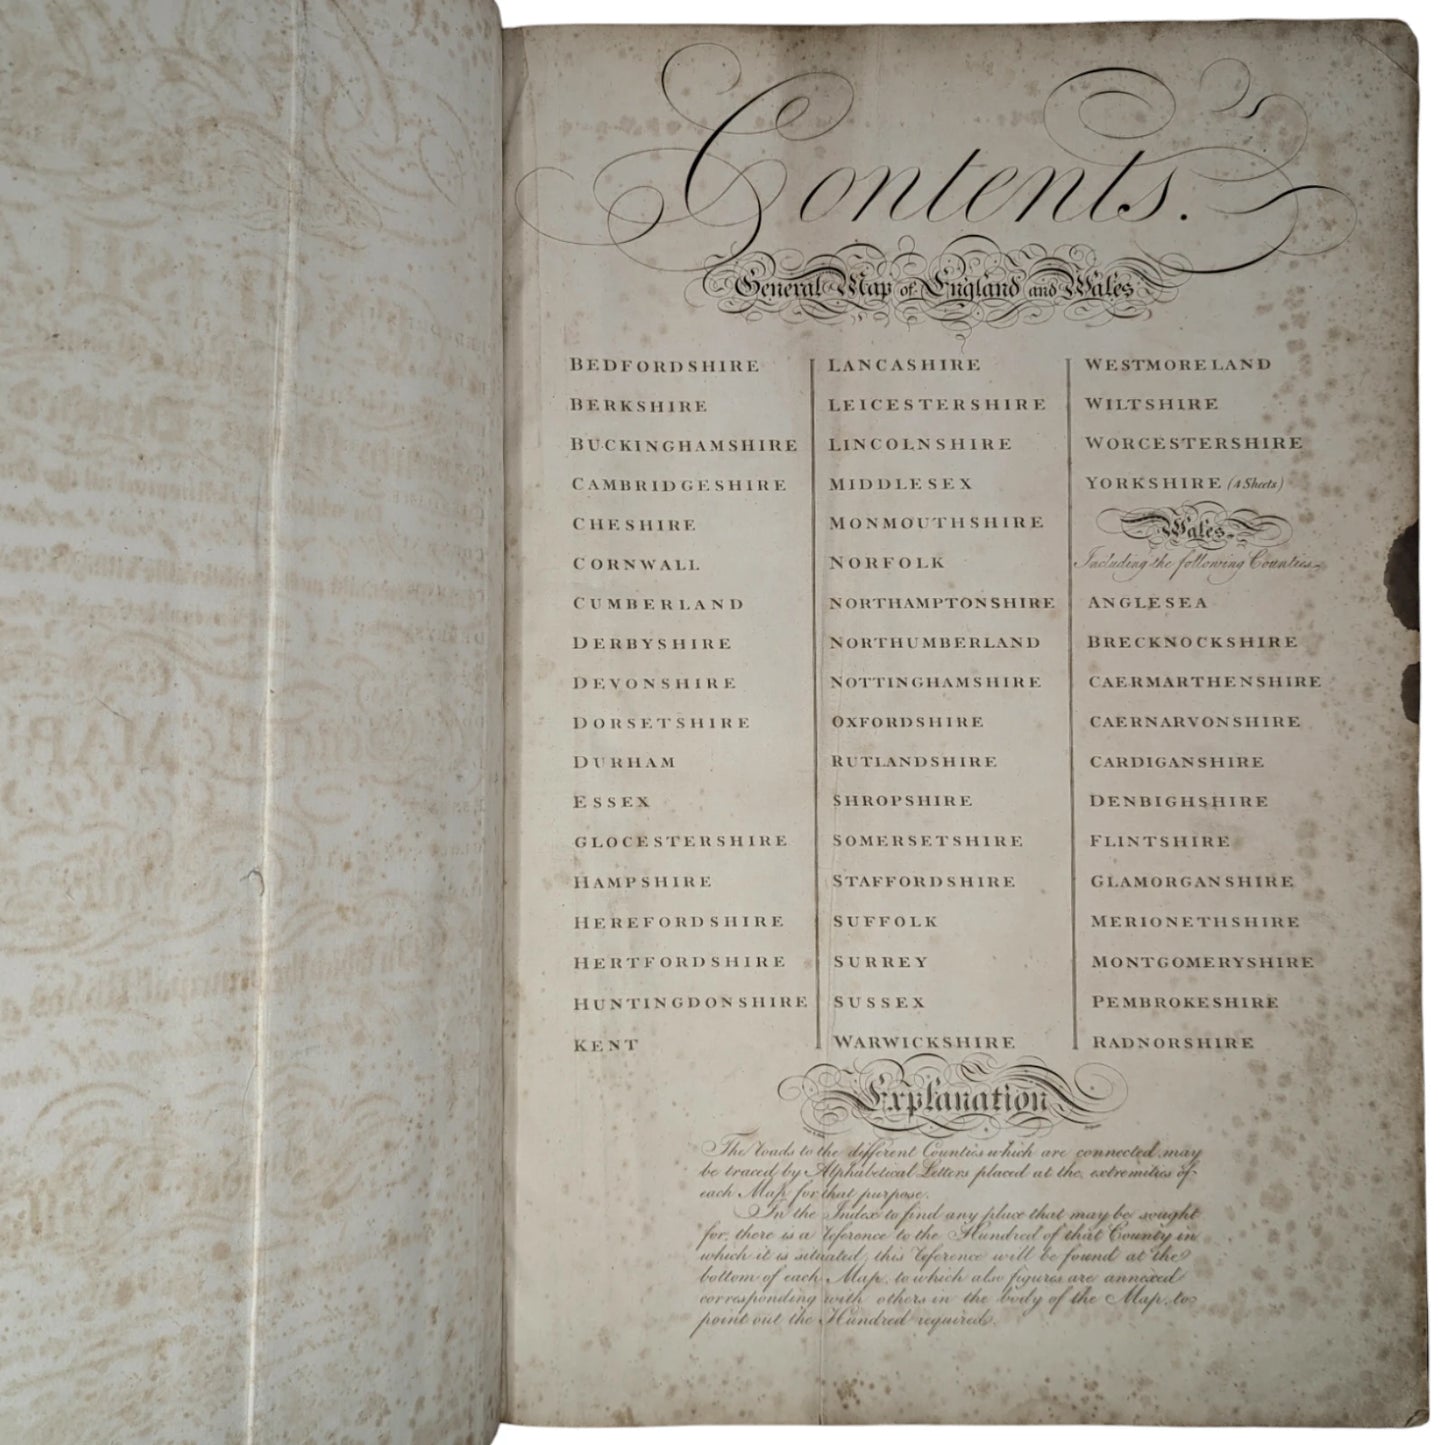 Contents.
General Map of England and Wales
BEDFORDSHIRE
BERKSHIRE
BUCKINGHAMSHIRE
CAMBRIDGESHIRE
CHESHIRE
CORNWALL
CUMBERLAND
DERBYSHIRE
DEVONSHIRE
DORSETSHIRE
DURHAM
ESSEX
GLOCESTERSHIRE
HAMPSHIRE
HEREFORDSHIRE
HERTFORDSHIRE
HUNTINGDONSHIRE
KENT
LANCASHIRE
LEICESTERSHIRE
LINCOLNSHIRE
MIDDLESEX
MONMOUTHSHIRE
NORFOLK
NORTHAMPTONSHIRE
NORTHUMBERLAND
NOTTINGHAMSHIRE
OXFORDSHIRE
RUTLANDSHIRE
SHROPSHIRE
SOMERSETSHIRE
STAFFORDSHIRE
SUFFOLK
SURREY
SUSSEX
WARWICKSHIRE
WESTMORELAND
WILTSHIRE
WORCESTERSHIRE
YORKSHIRE (4 Sheets)
Wales.
Including the following Counties.
ANGLESEA
BRECKNOCKSHIRE
CAERMARTHENSHIRE
CAERNARVONSHIRE
CARDIGANSHIRE
DENBIGHSHIRE
FLINTSHIRE
GLAMORGANSHIRE
MERIONETHSHIRE
MONTGOMERYSHIRE
PEMBROKESHIRE
RADNORSHIRE
Explanation
The roads to the different Counties which are connected may
be traced by Alphabetical Letters placed at the extremities of
each Map for that purpose.
In the Index to find any place that may be sought
for, there is a reference to the Hundred of that County in
which it is situated, this reference will be found at the
bottom of each Map, to which also figures are annexed
corresponding with others in the body of the Map, to
point out the Hundred required.